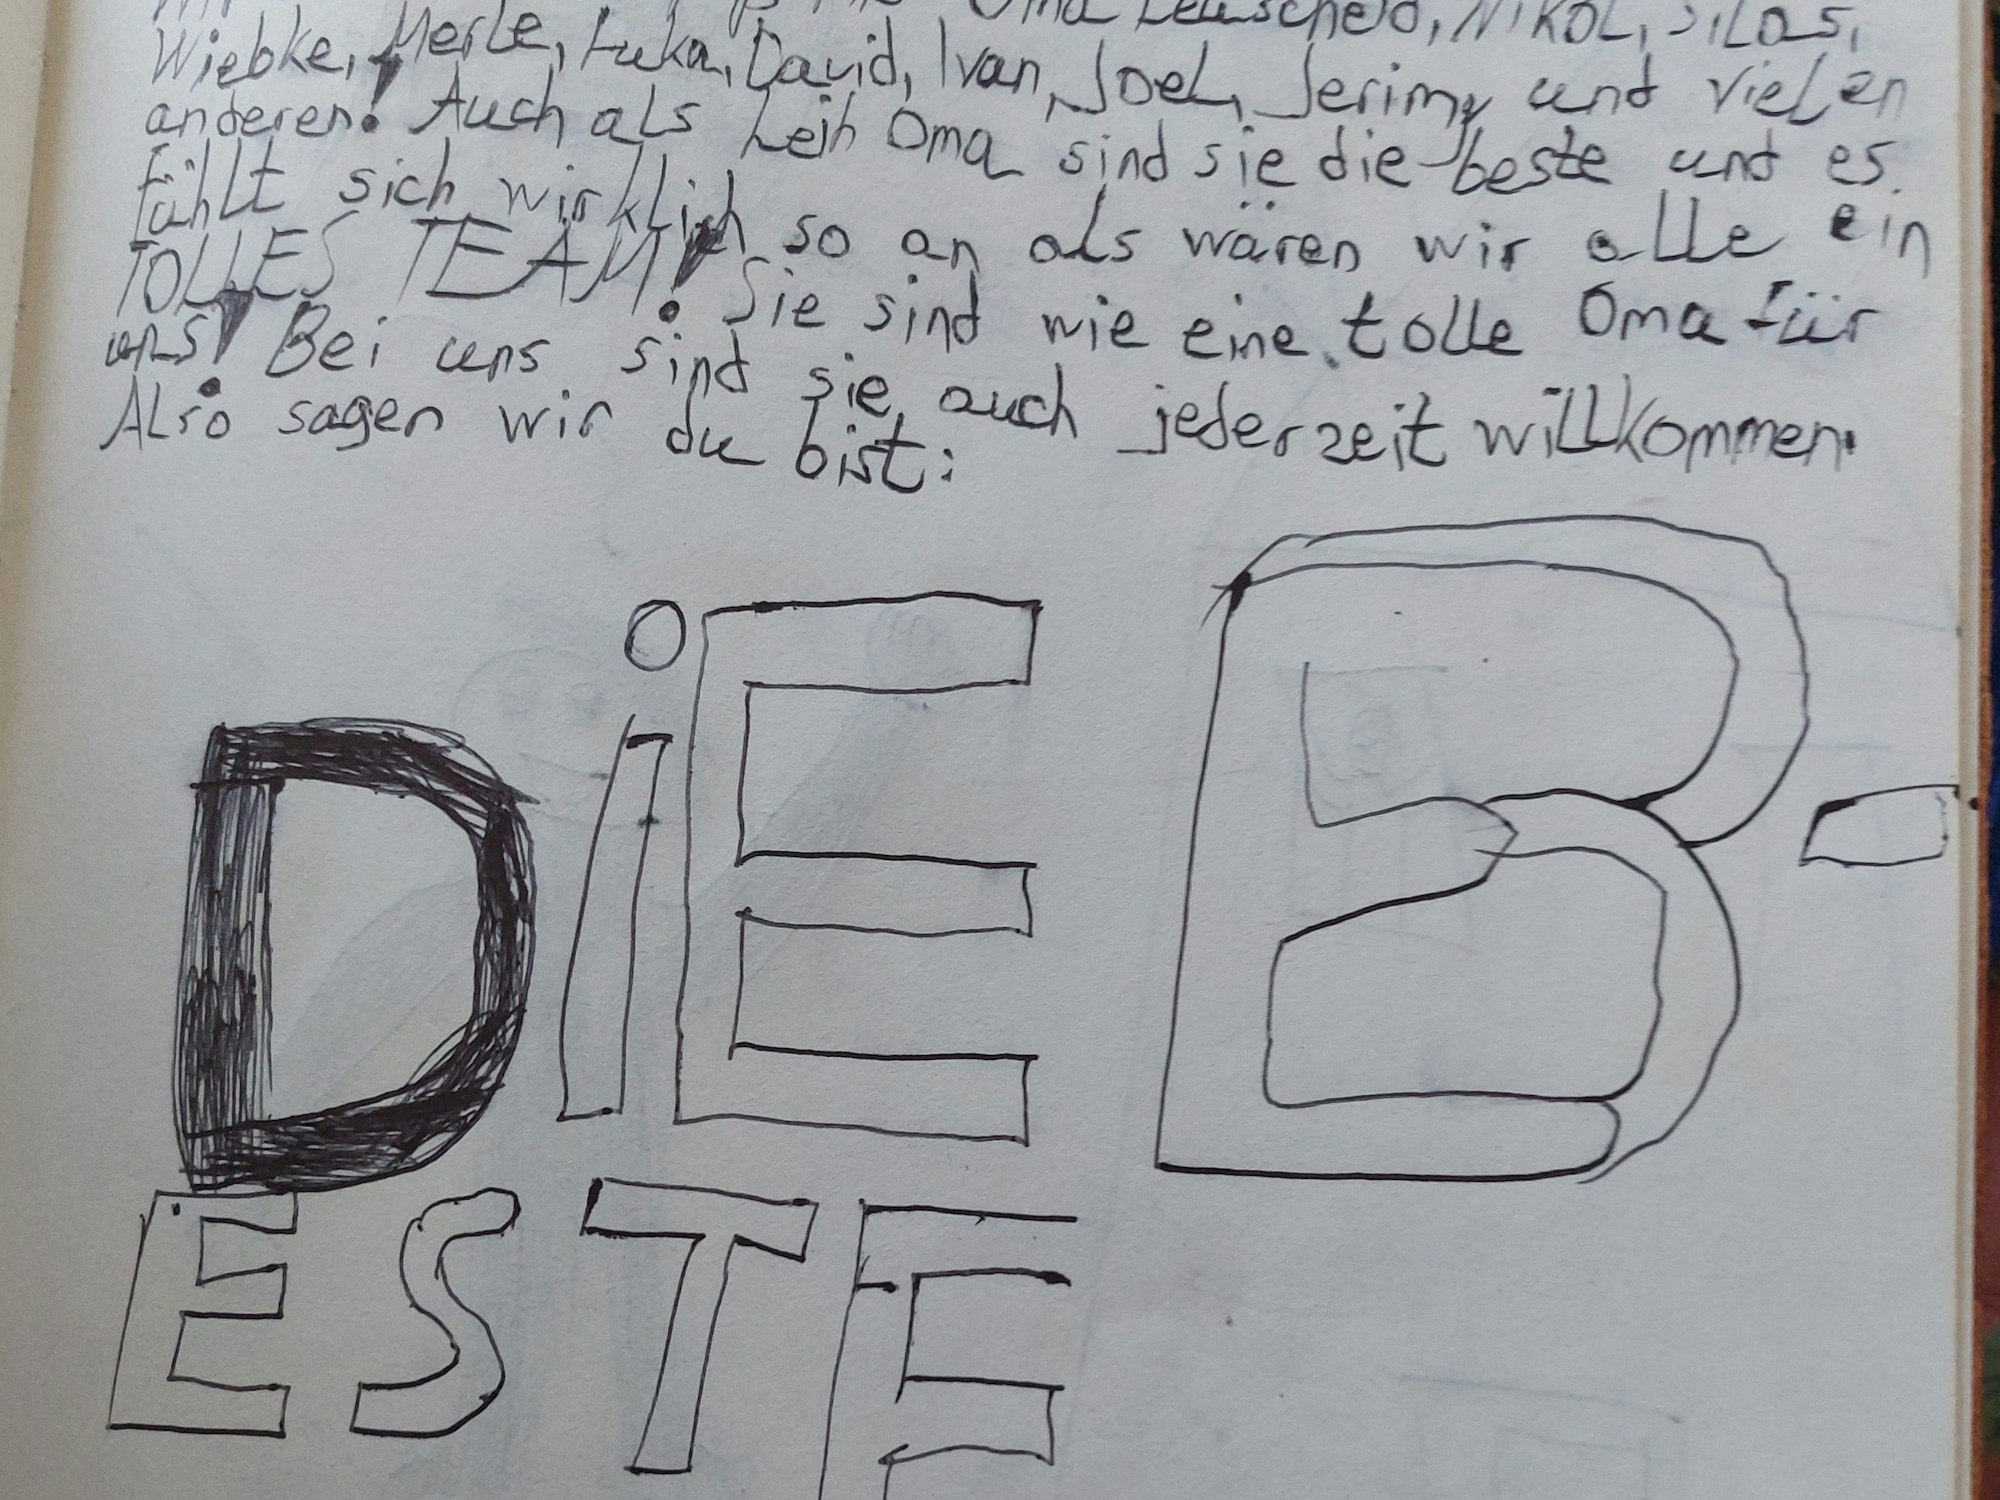 Oma Leuscheid, NIKOL, SiLas,
Wiebke, Merle, Luka, David, Ivan, Joel, Jerimy und vielen
anderen! Auch als Leih Oma sind sie die beste und es
fühlt sich wirklich so an als wären wir alle ein
TOLLES TEAM! Sie sind wie eine tolle Oma für
uns! Bei uns sind sie auch jederzeit willkommen.
Also sagen wir du bist:
DiE B-
ESTE